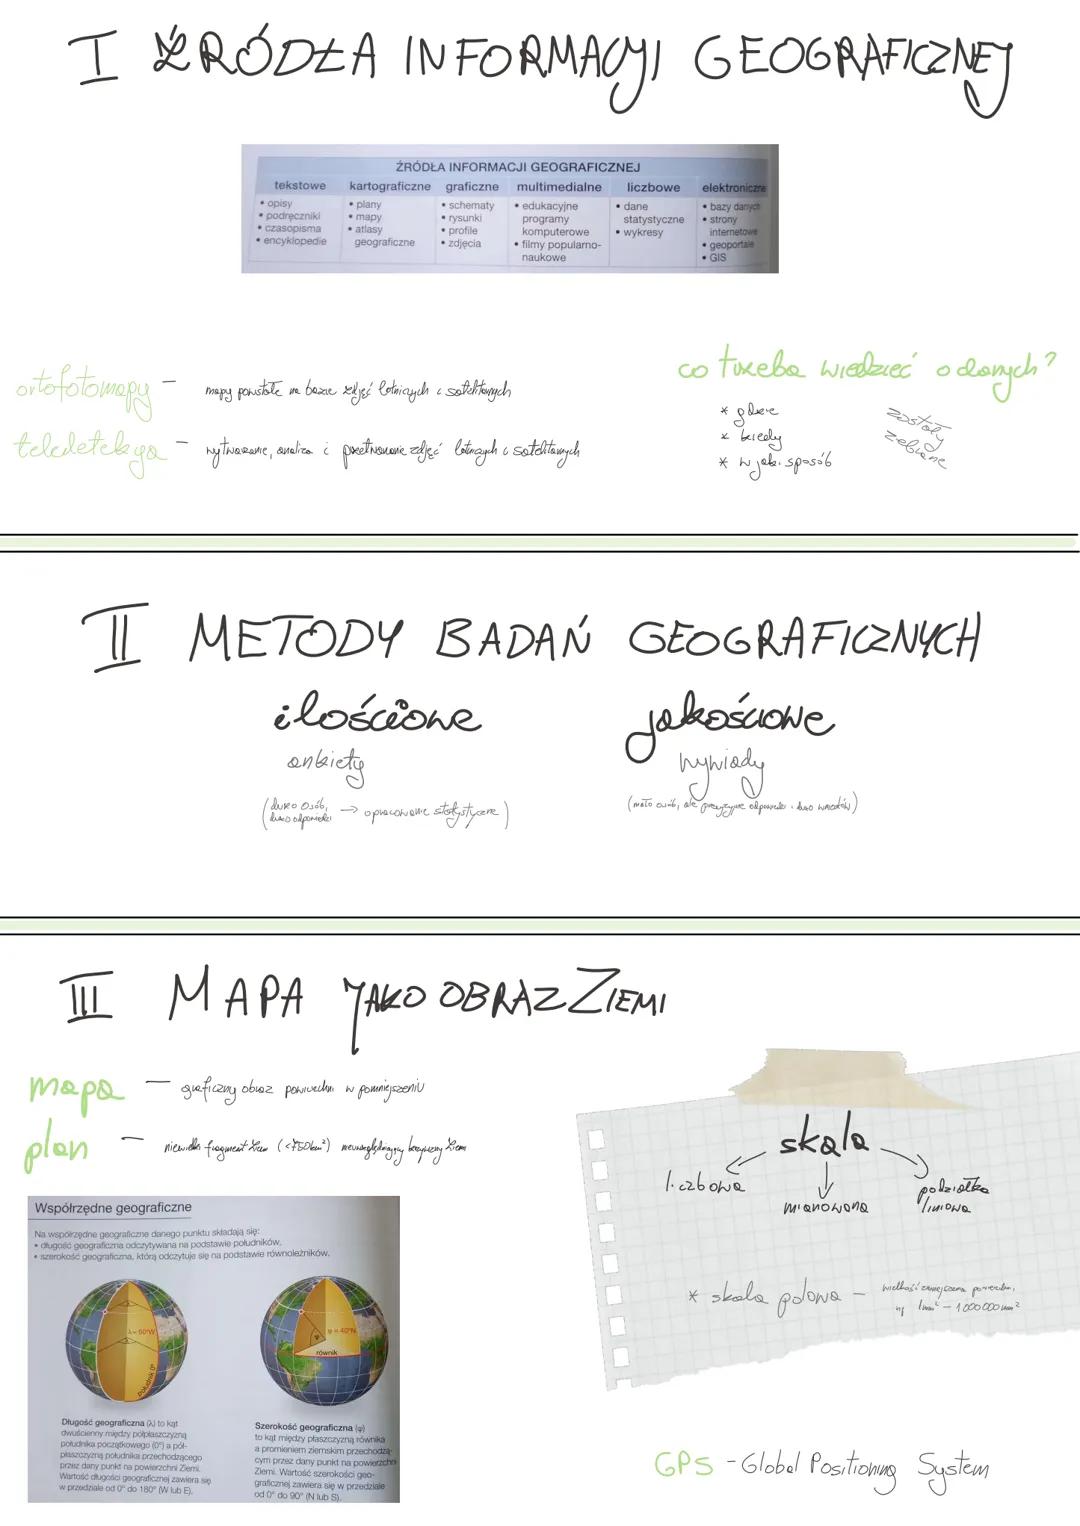 I ŹRÓDŁA INFORMACJI GEOGRAFICZNEJ
ŹRÓDŁA INFORMACJI GEOGRAFICZNEJ
tekstowe
• opisy
• podręczniki
• czasopisma
• encyklopedie
kartograficzne
• plany
• mapy
• atlasy
geograficzne
graficzne
• schematy
• rysunki
• profile
• zdjęcia
multimedialne
• edukacyjne
programy
komputerowe
• filmy popularno-
naukowe
liczbowe
• dane
statystyczne
• wykresy
elektroniczne
• bazy danych
• strony
internetowe
• geoportale
• GIS
ortofotomapy – mapy powstałe na bazie zdjęć lotniczych i satelitarnych
teledetekcja – wytwarzanie, analiza i przetwarzanie zdjęć lotniczych i satelitarnych
co trzeba wiedzieć o danych?
* gdzie
* kiedy
* w jaki sposób
zostały
zebrane
II METODY BADAŃ GEOGRAFICZNYCH
ilościowe
ankiety
(dużo osób,
dużo odpowiedzi → opracowanie statystyczne)
jakościowe
wywiady
(mało osób, ale precyzyjne odpowiedzi i dużo wniosków)
III MAPA JAKO OBRAZ ZIEMI
mapa – graficzny obraz powierzchni w pomniejszeniu
plan – niewielki fragment Ziemi (<750km²) nieuwzględniający krzywizny Ziemi
Współrzędne geograficzne
Na współrzędne geograficzne danego punktu składają się:
• długość geograficzna odczytywana na podstawie południków,
• szerokość geograficzna, którą odczytuje się na podstawie równoleżników.
λ = 60°W
południk 0°
φ = 40°N
φ
równik
Długość geograficzna (λ) to kąt
dwuścienny między półpłaszczyzną
południka początkowego (0°) a pół-
płaszczyzną południka przechodzącego
przez dany punkt na powierzchni Ziemi.
Wartość długości geograficznej zawiera się
w przedziale od 0° do 180° (W lub E).
Szerokość geograficzna (φ)
to kąt między płaszczyzną równika
a promieniem ziemskim przechodzą-
cym przez dany punkt na powierzchni
Ziemi. Wartość szerokości geo-
graficznej zawiera się w przedziale
od 0° do 90° (N lub S).
skala
liczbowa
mianowana
podziałka
liniowa
* skala polowa – wielkość zmniejszenia powierzchni,
np 1mm² – 1 000 000 mm²
GPS - Global Positioning System